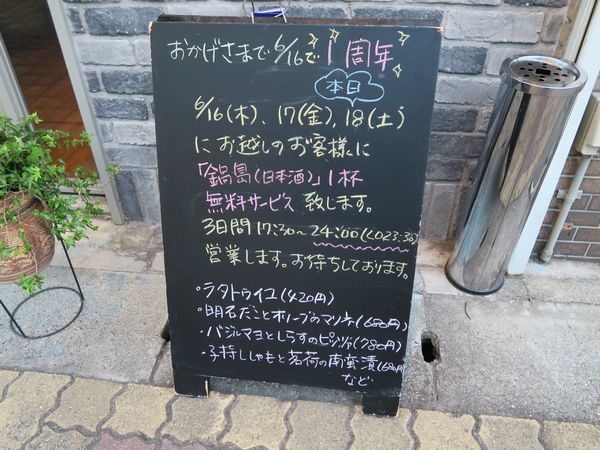 おかげさまで6/16で1周年
本日
6/16(木)、17(金)、18(土)
にお越しのお客様に
「鍋島(日本酒)」1杯
無料サービス致します。
3日間17:30~24:00(LO23:30)
営業します。お待ちしております。
・ラタトゥイユ(420円)
・明石だことオリーブのマリネ(680円)
・バジルマヨとしらすのピッツァ(780円)
・子持ししゃもと茗荷の南蛮漬(680円)
など